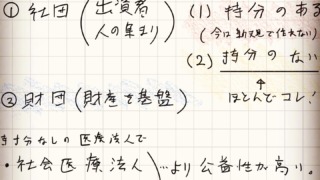 ① 社団 (出資者 人の集まり)
(1) 持分のある
(今は新規で作れない)
(2) 持分のない
↑
ほとんどコレ!
② 財団 (財産を基盤)
持分なしの医療法人で
・社会医療法人 …より公益性が高い。